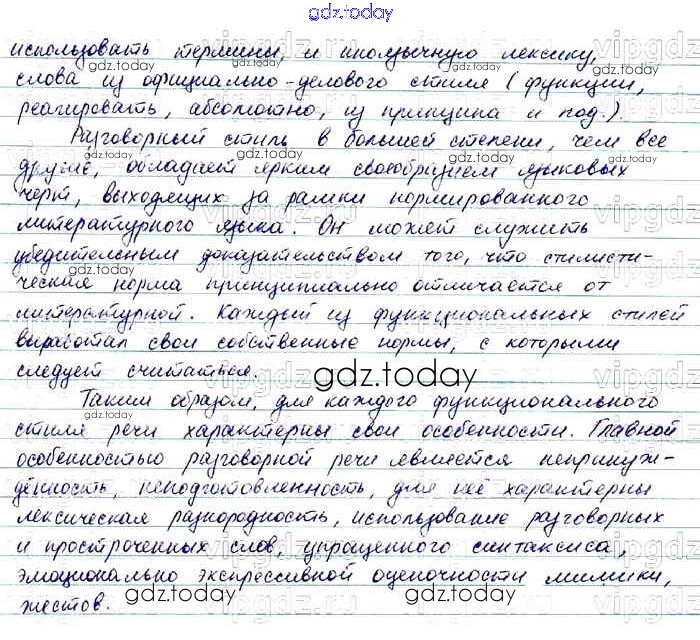 gdz.today
использовать термины, и иноязычную лексику,
слова из официально-делового стиля (функции,
реагировать, абсолютно, из принципа и под.).
Разговорный стиль в большей степени, чем все
другие, обладает ярким своеобразием языковых
черт, выходящих за рамки нормированного
литературного языка. Он может служить
убедительным доказательством того, что стилисти-
ческая норма принципиально отличается от
литературной. Каждый из функциональных стилей
выработал свои собственные нормы, с которыми
следует считаться.
gdz.today
Таким образом, для каждого функционального
стиля речи характерны свои особенности. Главной
особенностью разговорной речи является непринуж-
дённость, неподготовленность, для неё характерны
лексическая разнородность, использование разговорных
и простроченных слов, упрощенного синтаксиса,
эмоционально экспрессивной оценочности мимики,
жестов.